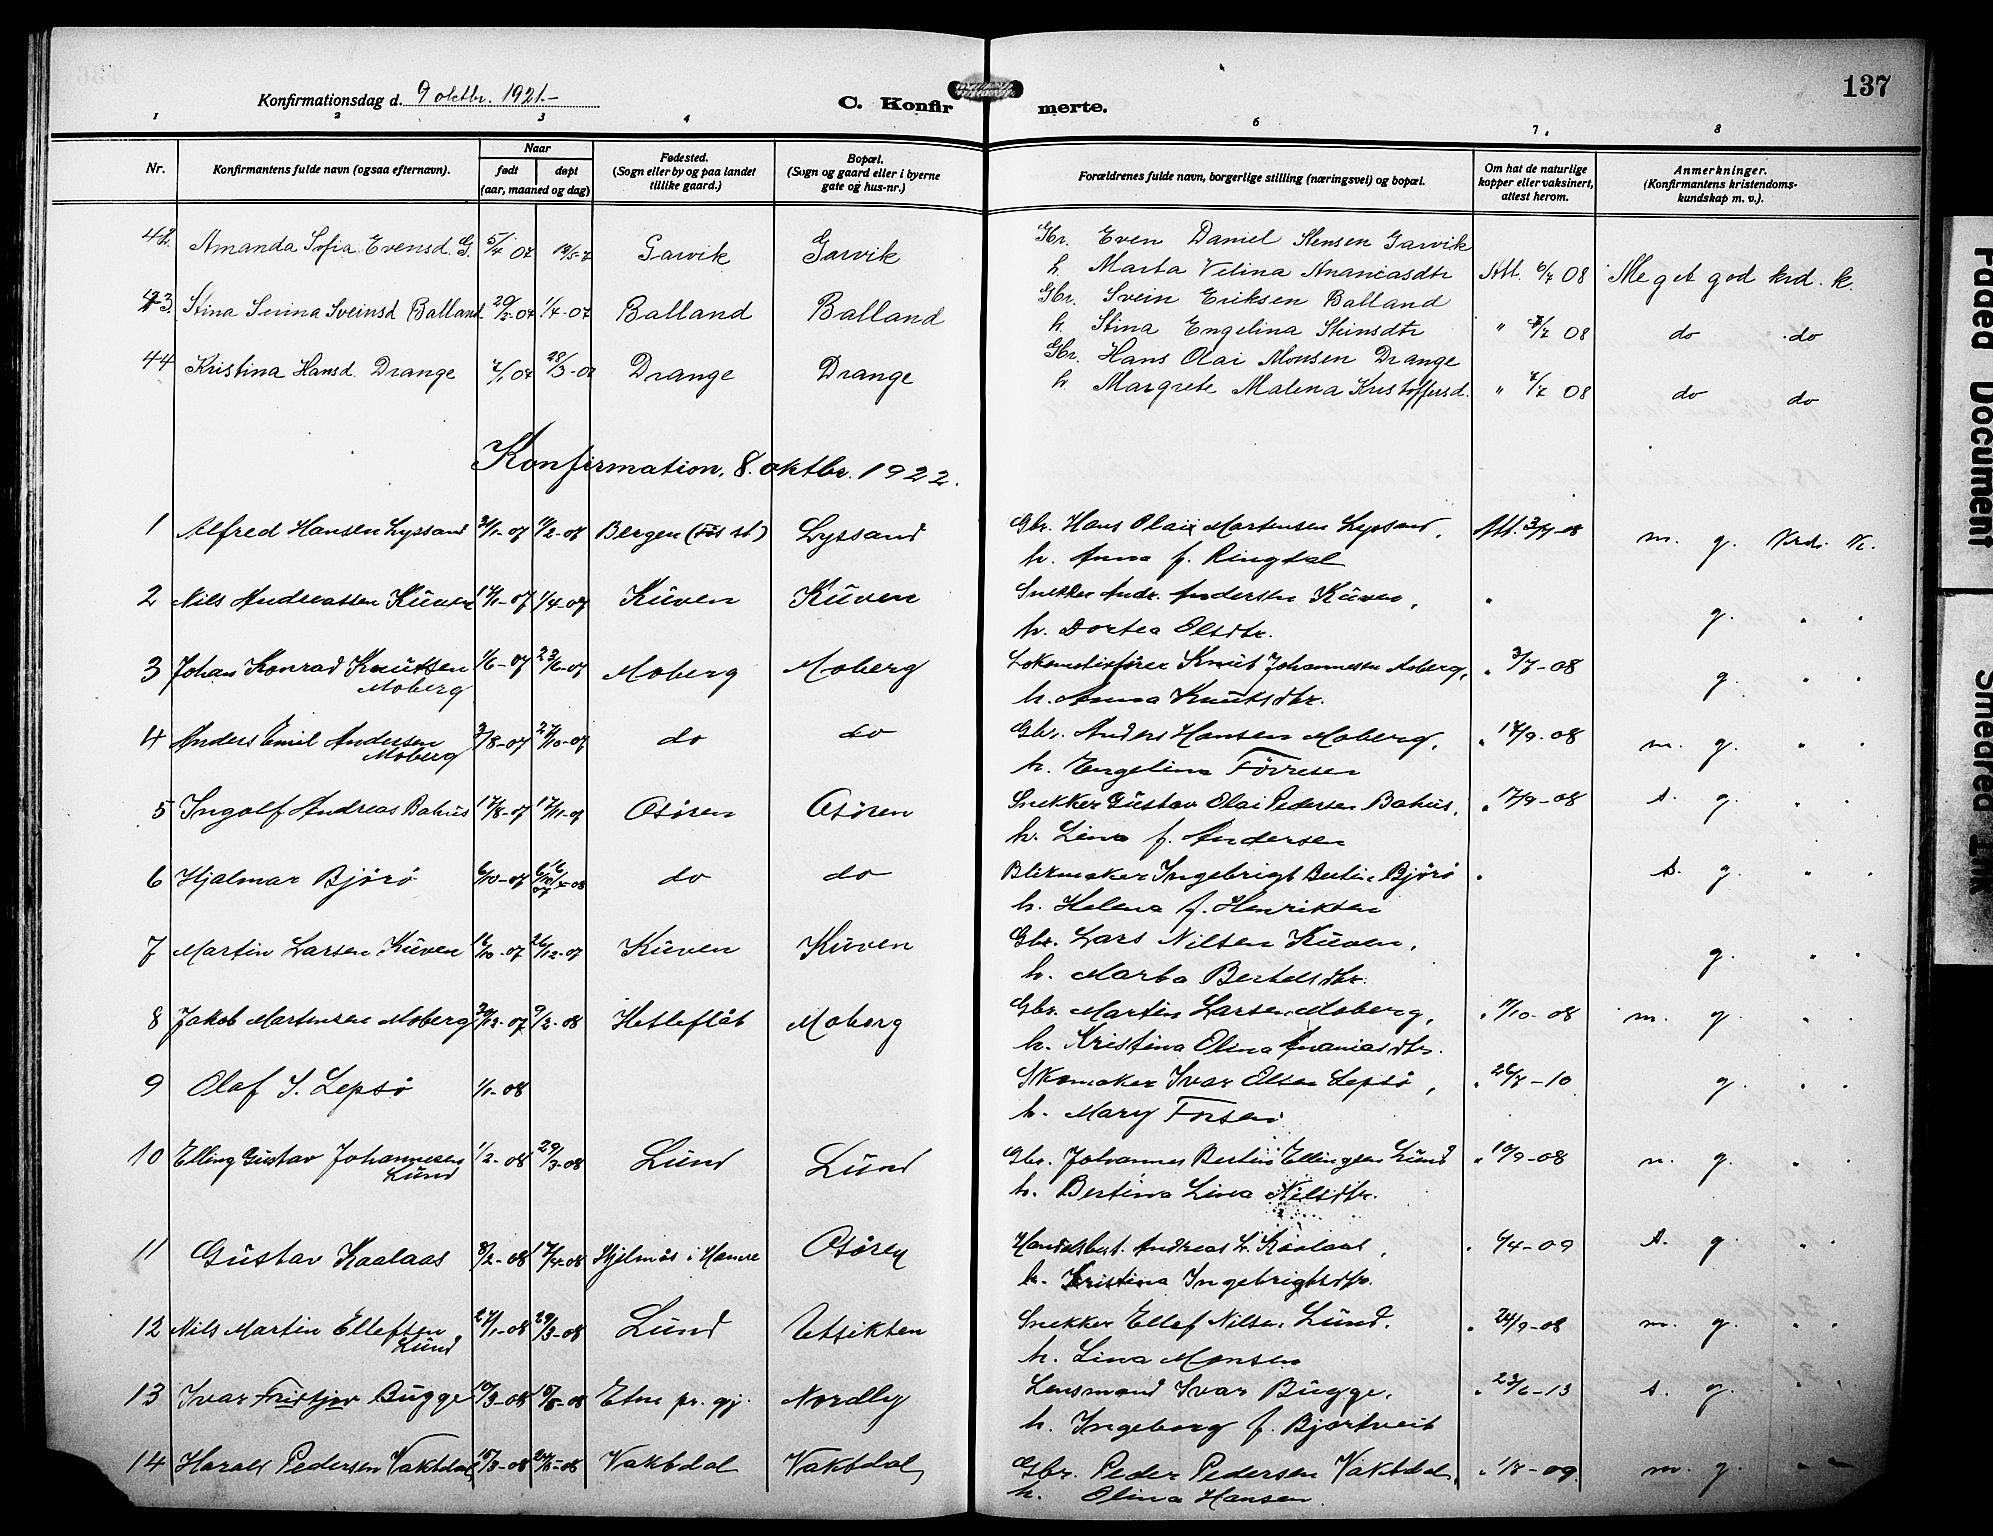 137
Konfirmationsdag d. 9 oktbr. 1921.-
C. Konfirmerte.
1 2 3 4 6 7. 8
Nr.
Konfirmantens fulde navn (ogsaa efternavn).
Naar
født døpt
(aar, maaned og dag)
Fødested.
(Sogn eller by og paa landet
tillike gaard.)
Bopæl.
(Sogn og gaard eller i byerne
gate og hus-nr.)
Forældrenes fulde navn, borgerlige stilling (næringsvei) og bopæl.
Om hat de naturlige
kopper eller vaksinert,
attest herom.
Anmerkninger.
(Konfirmantens kristendoms-
kundskap m. v.).
42. Amanda Sofia Evensd. G. 5/4 07 Garvik Garvik Gbr. Even Daniel Stensen Garvik
h. Marta Velina Ananiasdtr Att. 6/7 08 Meget god krd. k.
43. Stina Serina Sveinsd Balland 20/2-07 1/4-07 Balland Balland Gbr. Svein Eriksen Balland
h. Stina Engelina Steinsdtr " 08 do do
44 Kristina Hansd. Drange 07 28/3-07 Drange Drange Gbr. Hans Olai Monsen Drange
h. Margrete Malena Kristoffersd. " 08 do do
Konfirmation, 8. oktbr. 1922.
1 Alfred Hansen Lyssand Bergen Lyssand Gbr. Hans Olai Martensen Lyssand, Att. 3/7-08
h. Anna f. Ringdal m. g. Krd. K.
2 Nils Andreassen Kuven 17/1-07 1/4-07 Kuven Kuven Snekker Andr. Andersen Kuven, "
h. Dortea Olsdtr. g. " "
3 Johan Konrad Knutsen 1/6-07 23/6-07 Moberg Moberg Lokomotivfører Knut Johannesen Moberg, " 3/7-08
Moberg h. Anna Knutsdtr. g. " "
4 Anders Emil Andersen 3/8-07 27/10-07 do do Gbr. Anders Hansen Moberg, " 17/9-08
Moberg h. Engelina Førresen m. g. " "
5 Ingolf Andreas Bahus 17/8-07 17/11-07 Osøren Osøren Snekker Gustav Olai Pedersen Bahus, " 17/9-08 s. g. " "
h. Lina f. Andersen
6 Hjalmar Bjørø 6/10-07 do do Blikmaker Ingebrigt Bertin Bjørø " s. g. " "
h. Helena f. Henriksen
7 Martin Larsen Kuven 16/10-07 26/12-07 Kuven Kuven Gbr. Lars Nilsen Kuven,
h. Marta Bertelsdtr. g. " "
8 Jakob Martinsen Moberg 30/12-07 9/2-08 Hetleflåt Moberg Gbr. Martin Larsen Moberg, " 7/10-08 m. g. " "
h. Kristina Olina Ananiasdtr.
9 Olaf I. Lepsø 1/1-08 Skomaker Ivar Olsen Lepsø, " 26/8-10 g. " "
h. Mary Forsen
10 Elling Gustav Johannesen 1/2-08 29/3-08 Lund Lund Gbr. Johannes Bertin Ellingsen Lund " 10/9-08 m. g. " "
Lund h. Bertina Lina Nilsdtr.
11 Gustav Kaalaas 8/2-08 17/4-08 Skjelnås i Hamre Osøren Handelsbest. Andreas L. Kaalaas, " 6/4-09 s. g. " "
h. Kristina Ingebrigtsdtr.
12 Nils Martin Elleftsen 27/1-08 29/3-08 Lund Utsikten Snekker Ellef Nilsen Lund. " 24/9-08 m. g. " "
Lund h. Lina Monsen
13 Ivar Fridtjov Bugge 10/3-08 Etne pr. gj. Nordly Lensmand Ivar Bugge, " 23/6-13 s. g. " "
h. Ingeborg f. Bjørtveit
14 Harald Pedersen Vaktdal 15/3-08 24/5-08 Vaktdal Vaktdal Gbr. Peder Pedersen Vaktdal, " 1/8-09 m. g. " "
h. Olina Hansen.
Faded Document
Smeared Ink